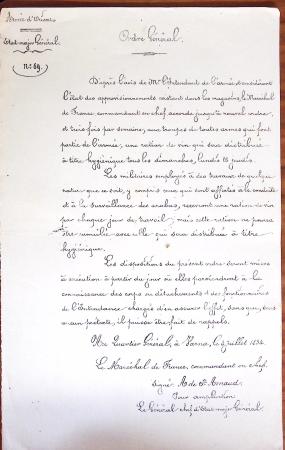 Armée d'Orient
Etat-major Général.
N° 69.
Ordre Général.
D'après l'avis de Mr l'Intendant de l'armée et considérant
l'état des approvisionnements existant dans les magasins, le Maréchal
de France, commandant en chef, accorde jusqu'à nouvel ordre,
et trois fois par semaine, aux troupes de toutes armes qui font
partie de l'armée, une ration de vin qui sera distribuée
à titre hygiénique tous les dimanches, lundis et jeudis.
Les militaires employés à des travaux de quelque
nature que ce soit, y compris ceux qui sont affectés à la conduite
et à la surveillance des arabas, recevront une ration de vin
par chaque jour de travail, mais cette ration ne pourra
être cumulée avec celle qui sera distribuée à titre
hygiénique.
Les dispositions du présent ordre seront mises
à exécution à partir du jour où elles parviendront à la
connaissance des corps ou détachements et des fonctionnaires
de l'Intendance chargés d'en assurer l'effet, sans que, sous
aucun prétexte, il puisse être fait de rappels.
Au Quartier Général, à Varna, le juillet 1854.
Le Maréchal de France, commandant en chef.
Signé: A. de St Arnaud.
Pour ampliation
Le Général chef d'Etat-major Général.